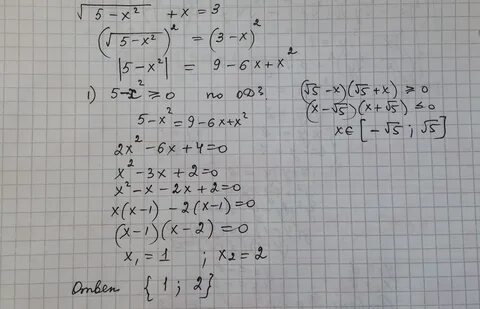 √(5-x²) + x = 3
(√(5-x²))² = (3-x)²
|5-x²| = 9-6x+x²
1) 5-x² ≥ 0 по ОДЗ.
(√5-x)(√5+x) ≥ 0
(x-√5)(x+√5) ≤ 0
x∈[-√5; √5]
5-x² = 9-6x+x²
2x²-6x+4=0
x²-3x+2=0
x²-x-2x+2=0
x(x-1)-2(x-1)=0
(x-1)(x-2)=0
x₁=1 ; x₂=2
Ответ {1; 2}